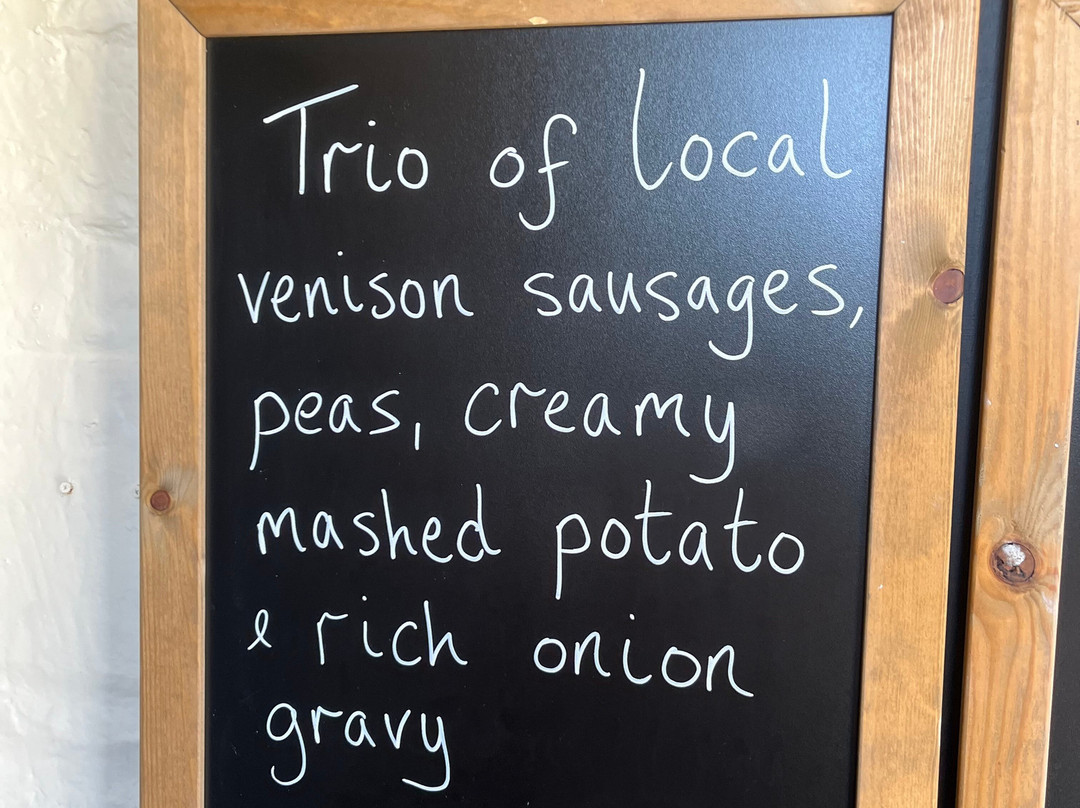 Trio of local
venison sausages,
peas, creamy
mashed potato
& rich onion
gravy